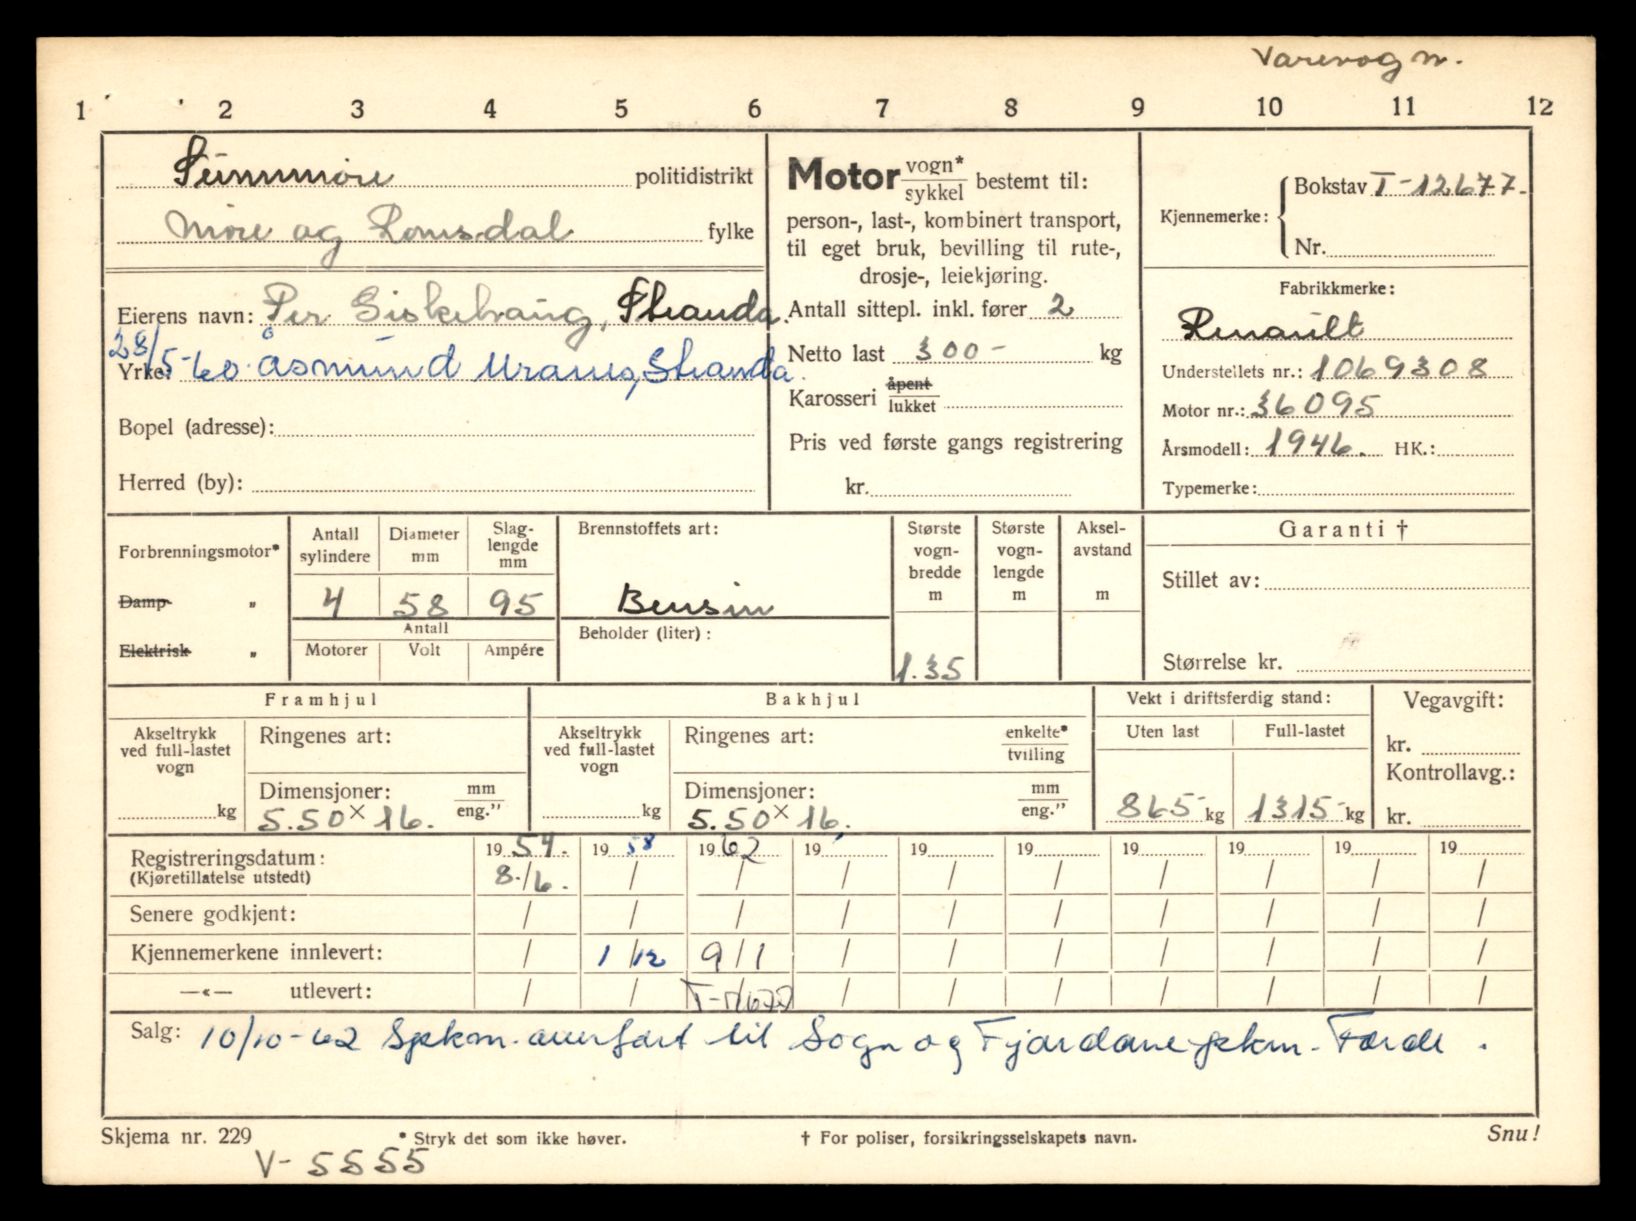 Varevogn.
1 2 3 4 5 6 7 8 9 10 11 12
Sunnmøre politidistrikt
Møre og Romsdal fylke
Eierens navn: Per Giskehaug, Stranda.
28/5-60 Åsmund Uranes, Stranda.
Yrke:
Bopel (adresse):
Herred (by):
Motor vogn* / sykkel bestemt til:
person-, last-, kombinert transport,
til eget bruk, bevilling til rute-,
drosje-, leiekjøring.
Antall sittepl. inkl. fører 2
Netto last 300- kg
Karosseri åpent / lukket
Pris ved første gangs registrering
kr.
Kjennemerke: Bokstav T-12677.
Nr.
Fabrikkmerke:
Renault
Understellets nr.: 1069308
Motor nr.: 36095
Årsmodell: 1946. HK.:
Typemerke:
Forbrenningsmotor*
Damp- "
Elektrisk "
Antall sylindere Diameter mm Slag-lengde mm
4 58 95
Antall
Motorer Volt Ampére
Brennstoffets art:
Bensin
Beholder (liter):
Største vogn-bredde m
1.35
Største vogn-lengde m
Aksel-avstand m
Garanti †
Stillet av:
Størrelse kr.
Framhjul
Akseltrykk ved full-lastet vogn
kg
Ringenes art:
Dimensjoner: mm / eng."
5.50 x 16.
Bakhjul
Akseltrykk ved full-lastet vogn
kg
Ringenes art: enkelte* / tvilling
Dimensjoner: mm / eng."
5.50 x 16.
Vekt i driftsferdig stand:
Uten last Full-lastet
865- kg 1315- kg
Vegavgift:
kr.
Kontrollavg.:
kr.
Registreringsdatum: 19 54. 19 58 19 62 19 19 19 19 19 19 19
(Kjøretillatelse utstedt) 8./6. / / / / / / / / /
Senere godkjent: / / / / / / / / / /
Kjennemerkene innlevert: / 1/12 9/1 / / / / / / /
—«— utlevert: / / / / / / / / /
Salg: 10/10-62 Spkm. overført til Sogn og Fjordane pkm. Førde.
Skjema nr. 229 * Stryk det som ikke høver. † For poliser, forsikringsselskapets navn. Snu!
V-5555